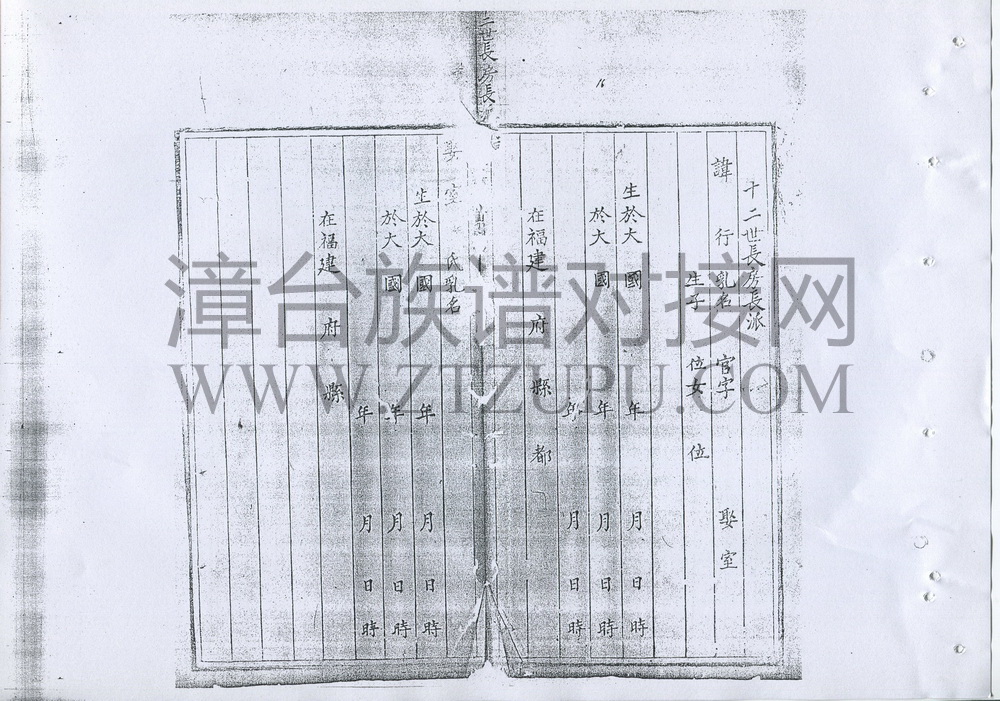 十二世長房長派
諱 行乳名 官字 娶室
生子 位女 位
生於大 國 年 月 日 時
於大 國 年 月 日 時
年 月 日 時
在福建 府 縣 都
二世長房長派
娶室 氏乳名
生於大 國 年 月 日 時
於大 國 年 月 日 時
年 月 日 時
在福建 府 縣
漳台族谱对接网
WWW.ZTZUPU.COM